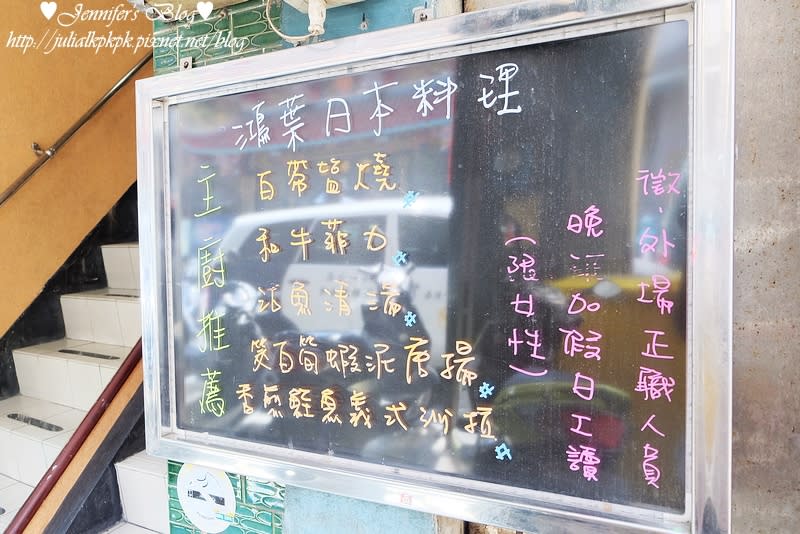 ♥Jennifer's Blog♥
http://julialkpkpk.pixnet.net/blog
鴻葉日本料理
主廚推薦
白帶塩燒
和牛菲力
活魚清湯
炸百筒蝦泥唐揚
香煎鮭魚義式沙拉
徵.外場正職人員
晚班加假日工讀
(限女性)